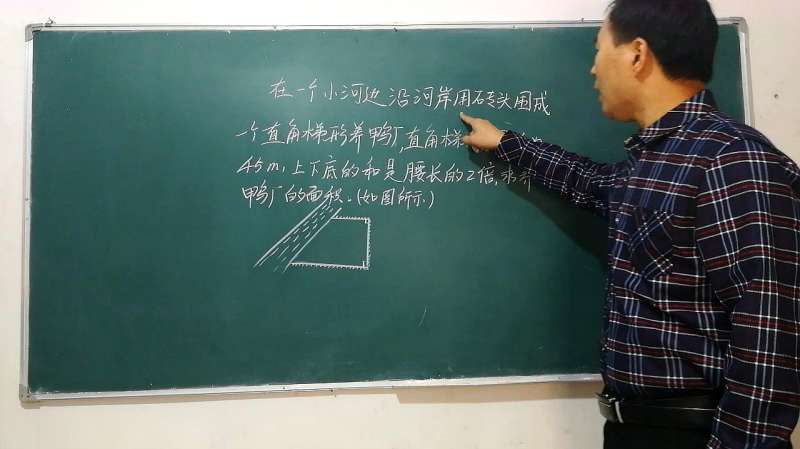 在一个小河边沿河岸用砖头围成
一个直角梯形养鸭厂,直角梯
45m,上下底的和是腰长的2倍,求养
鸭厂的面积。(如图所示)